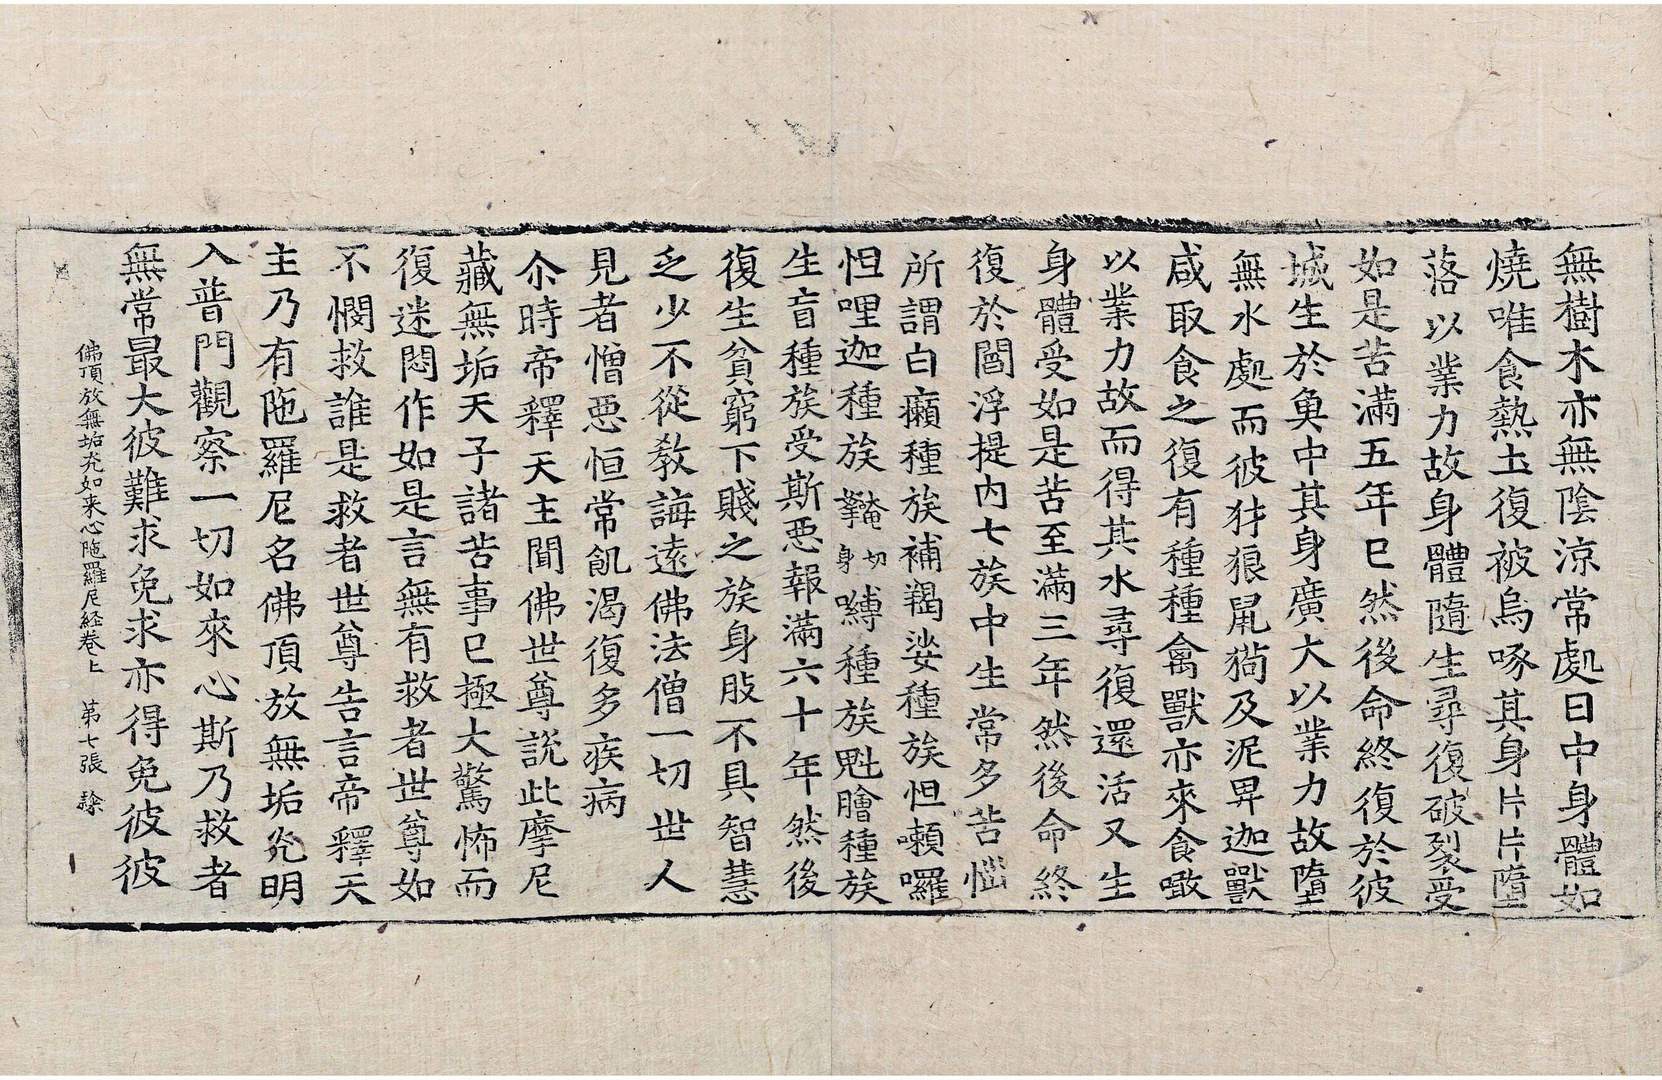 無樹木亦無陰涼常處日中身體如
燒唯食熱土復被烏啄其身片片墮
落以業力故身體隨生尋復破裂受
如是苦滿五年已然後命終復於彼
城生於魚中其身廣大以業力故墮
無水處而彼犲狼鼠猯及泥畀迦獸
咸取食之復有種種禽獸亦來食噉
以業力故而得其水尋復還活又生
身體受如是苦至滿三年然後命終
復於閻浮提内七族中生常多苦惱
所謂白癩種族補羯娑種族怛嚩囉
怛哩迦種族 切身嚩種族魁膾種族
生盲種族受斯惡報滿六十年然後
復生貧窮下賤之族身肢不具智慧
乏少不從教誨遠佛法僧一切世人
見者憎惡恒常飢渴復多疾病
尒時帝釋天主聞佛世尊説此摩尼
藏無垢天子諸苦事已極大驚怖而
復迷悶作如是言無有救者世尊如
不憫救誰是救者世尊告言帝釋天
主乃有陁羅尼名佛頂放無垢光明
入普門觀察一切如來心斯乃救者
無常最大彼難求免求亦得免彼彼
佛頂放無垢光如来心陁羅尼経卷上 第七張